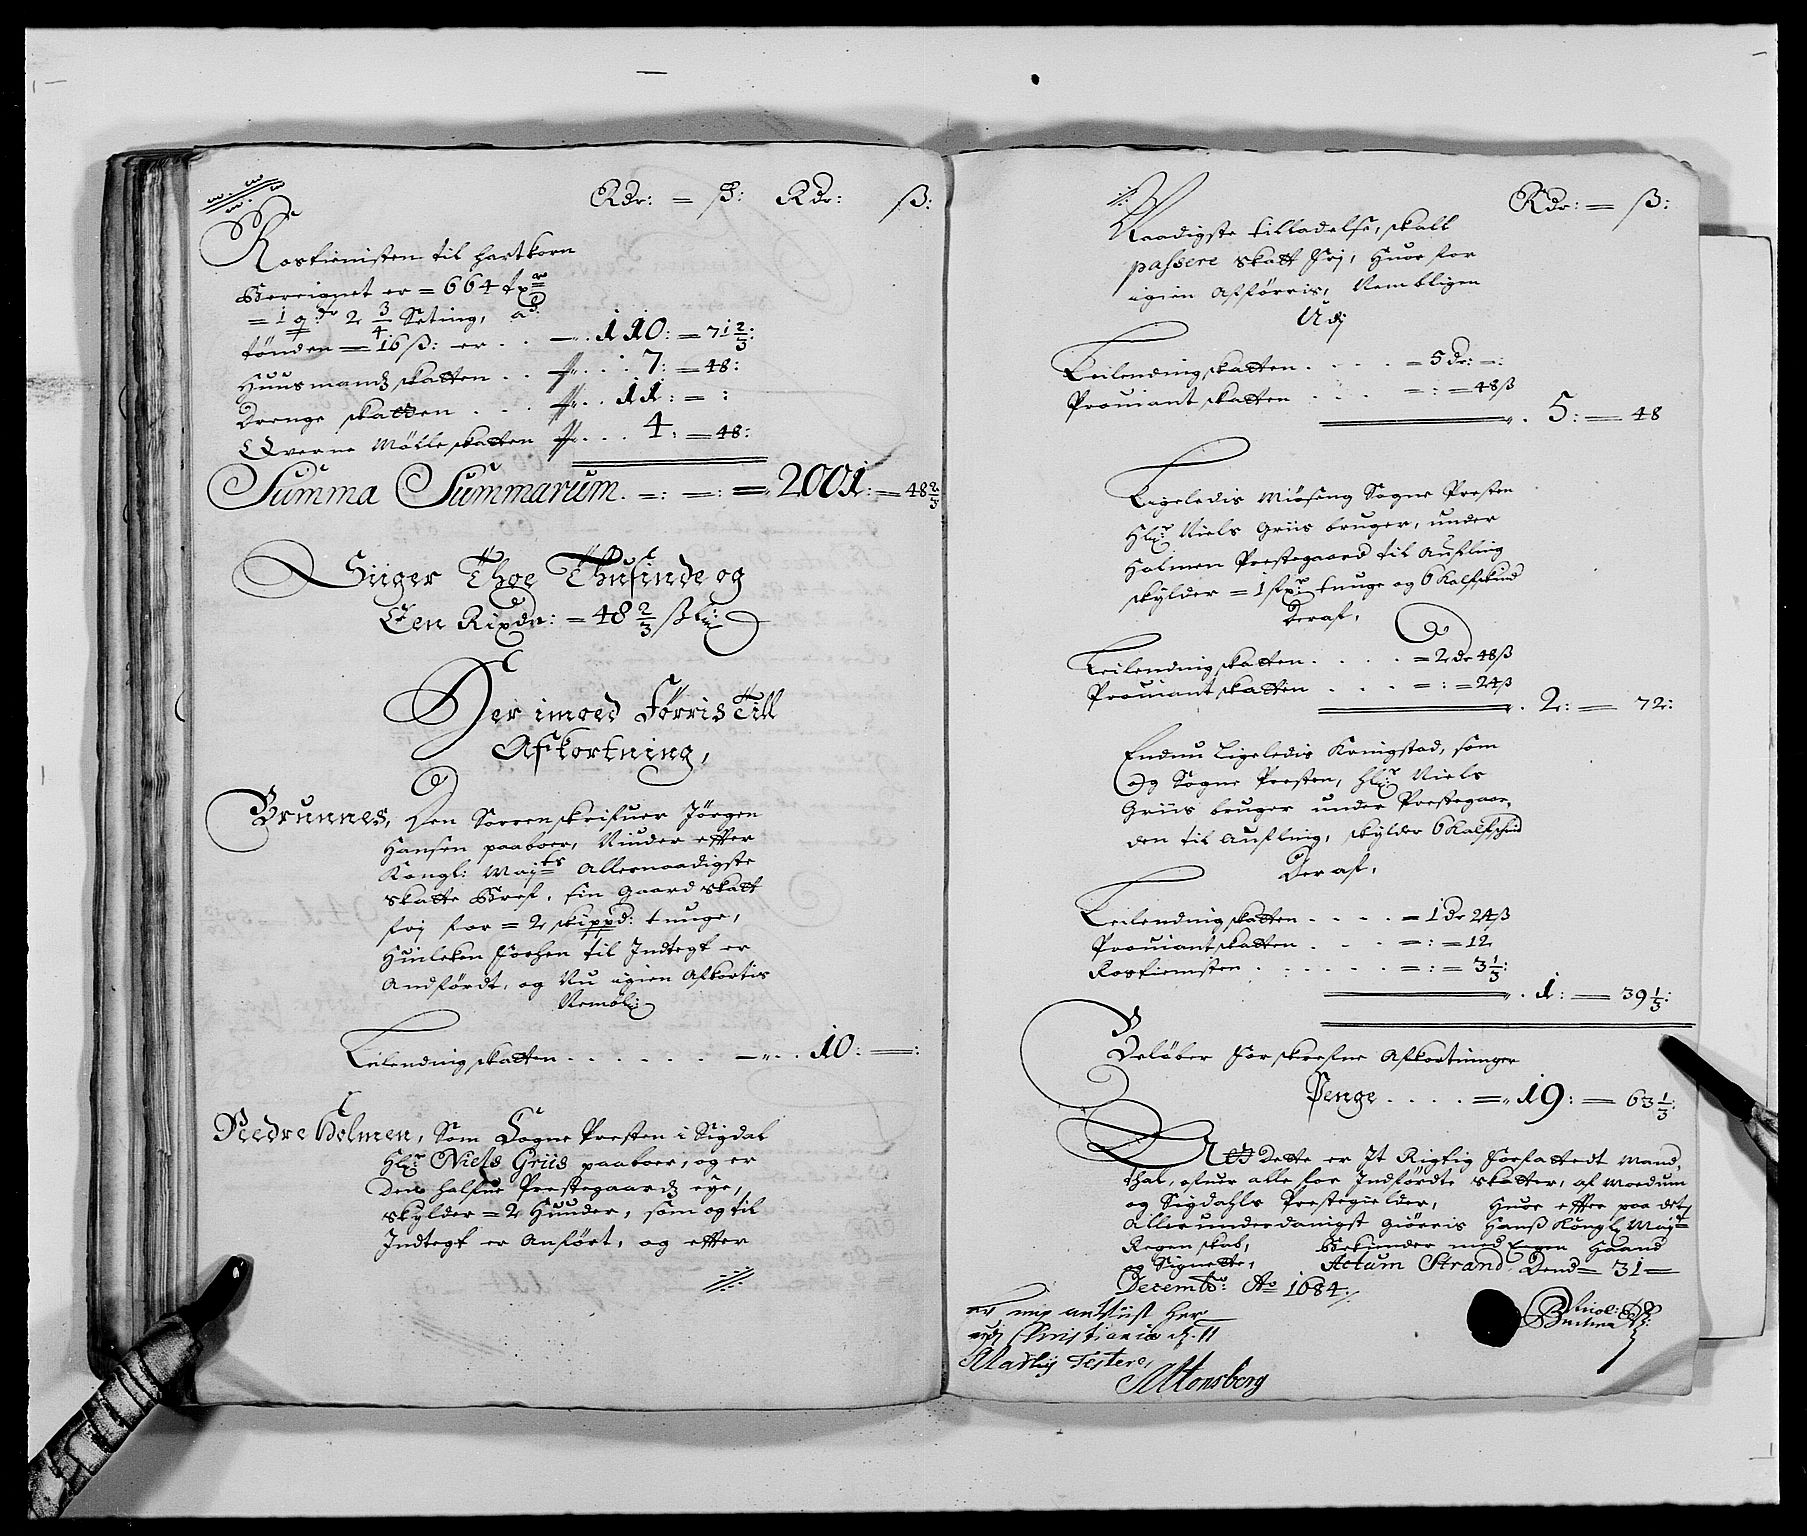 Rdr: = ß: Rdr: ß:
Rostienisten til hartkorn
Bereignet er = 664 t
= 1 q 2 3/4 Seting, ad
tønden = 16 ß: er . . — . 110: = 71 2/3:
Huusmandz skatten . . — . . . 7: = 48:
Drenge skatten . . . — . . 11: = :
Qverne Mølle skatten — . . . 4: = 48:
Summa Summarum. =: =: = 2001: = 48 2/3
Siiger Thoe Thusinde og
Een Rixdr: = 48 2/3 ß
Her imoed Førris Till
Afkortning,
Brunnes, Den Sorrenskrifuer Jörgen
Hansen paaboer, Niuder effter
Kongl: May:ts Allernaadigste
skatte Bref, sin Gaard skatt
frj for = 2 skippd: tunge,
Huilcken Forhen til Indtegt er
Andførdt, og Nu igien Afkortis
Nembl:
Leilending skatten . . . . . . — . . 10: =:
Nedre Holmen, Som Sogne Presten i Sigdal
Hr: Niels Griis paaboer, og er
Den halfue Prestegaardz eye,
skylder = 2 Hunder, som og til
Indtegt er Anført, og effter
Rdr: = ß:
Naadigste tilladelse, skall
passere skatt frj, Huor for
igien Afførris, Nembligen
Udj
Leilending skatten . . . . = 5 dr: =:
Prouiant skatten . . . =: = 48 ß
. 5: = 48
Ligeledis Miøseng Sogne Presten
Hr: Niels Griis bruger, under
Holmen Prestegaard til Aufling
skylder = 1 tunge og 6 Kalfskind
Deraf,
Leilending skatten . . . . = 2 dr 48 ß
Prouiant skatten . . . =: = 24 ß
. 2: = 72:
Endnu Ligeledis Kringstad, som
og Sogne Presten, Hr: Niels
Griis bruger under Prestegaar,
den til Aufling, skylder 6 Kalfschind
Deraf,
Leilending skatten . . . . = 1 dr 24 ß
Prouiant skatten . . . =: = 12
Rostiensten . . . . . . =: = 3 1/3:
. 1: = 39 1/3:
Beløber Forskrefne Afkortninger
Penge . . . . = 19: = 63 1/3:
At Dette er It Rigtig Forfattedt Mand,
thal, ofuer alle for Indførdte skatter, af Moedum
og Sigdahls Prestegielder, Huor effter paa det
Allerunderdanigst giørris Hans Kongl May:ts
Regenskab, Bekiender med Egen Haand
og Signette, Actum Strand Dend = 31 =
Decemb: Ao 1684
er mig anviist her
udj Christiania d. 11
Martij Testerer
Monsberg